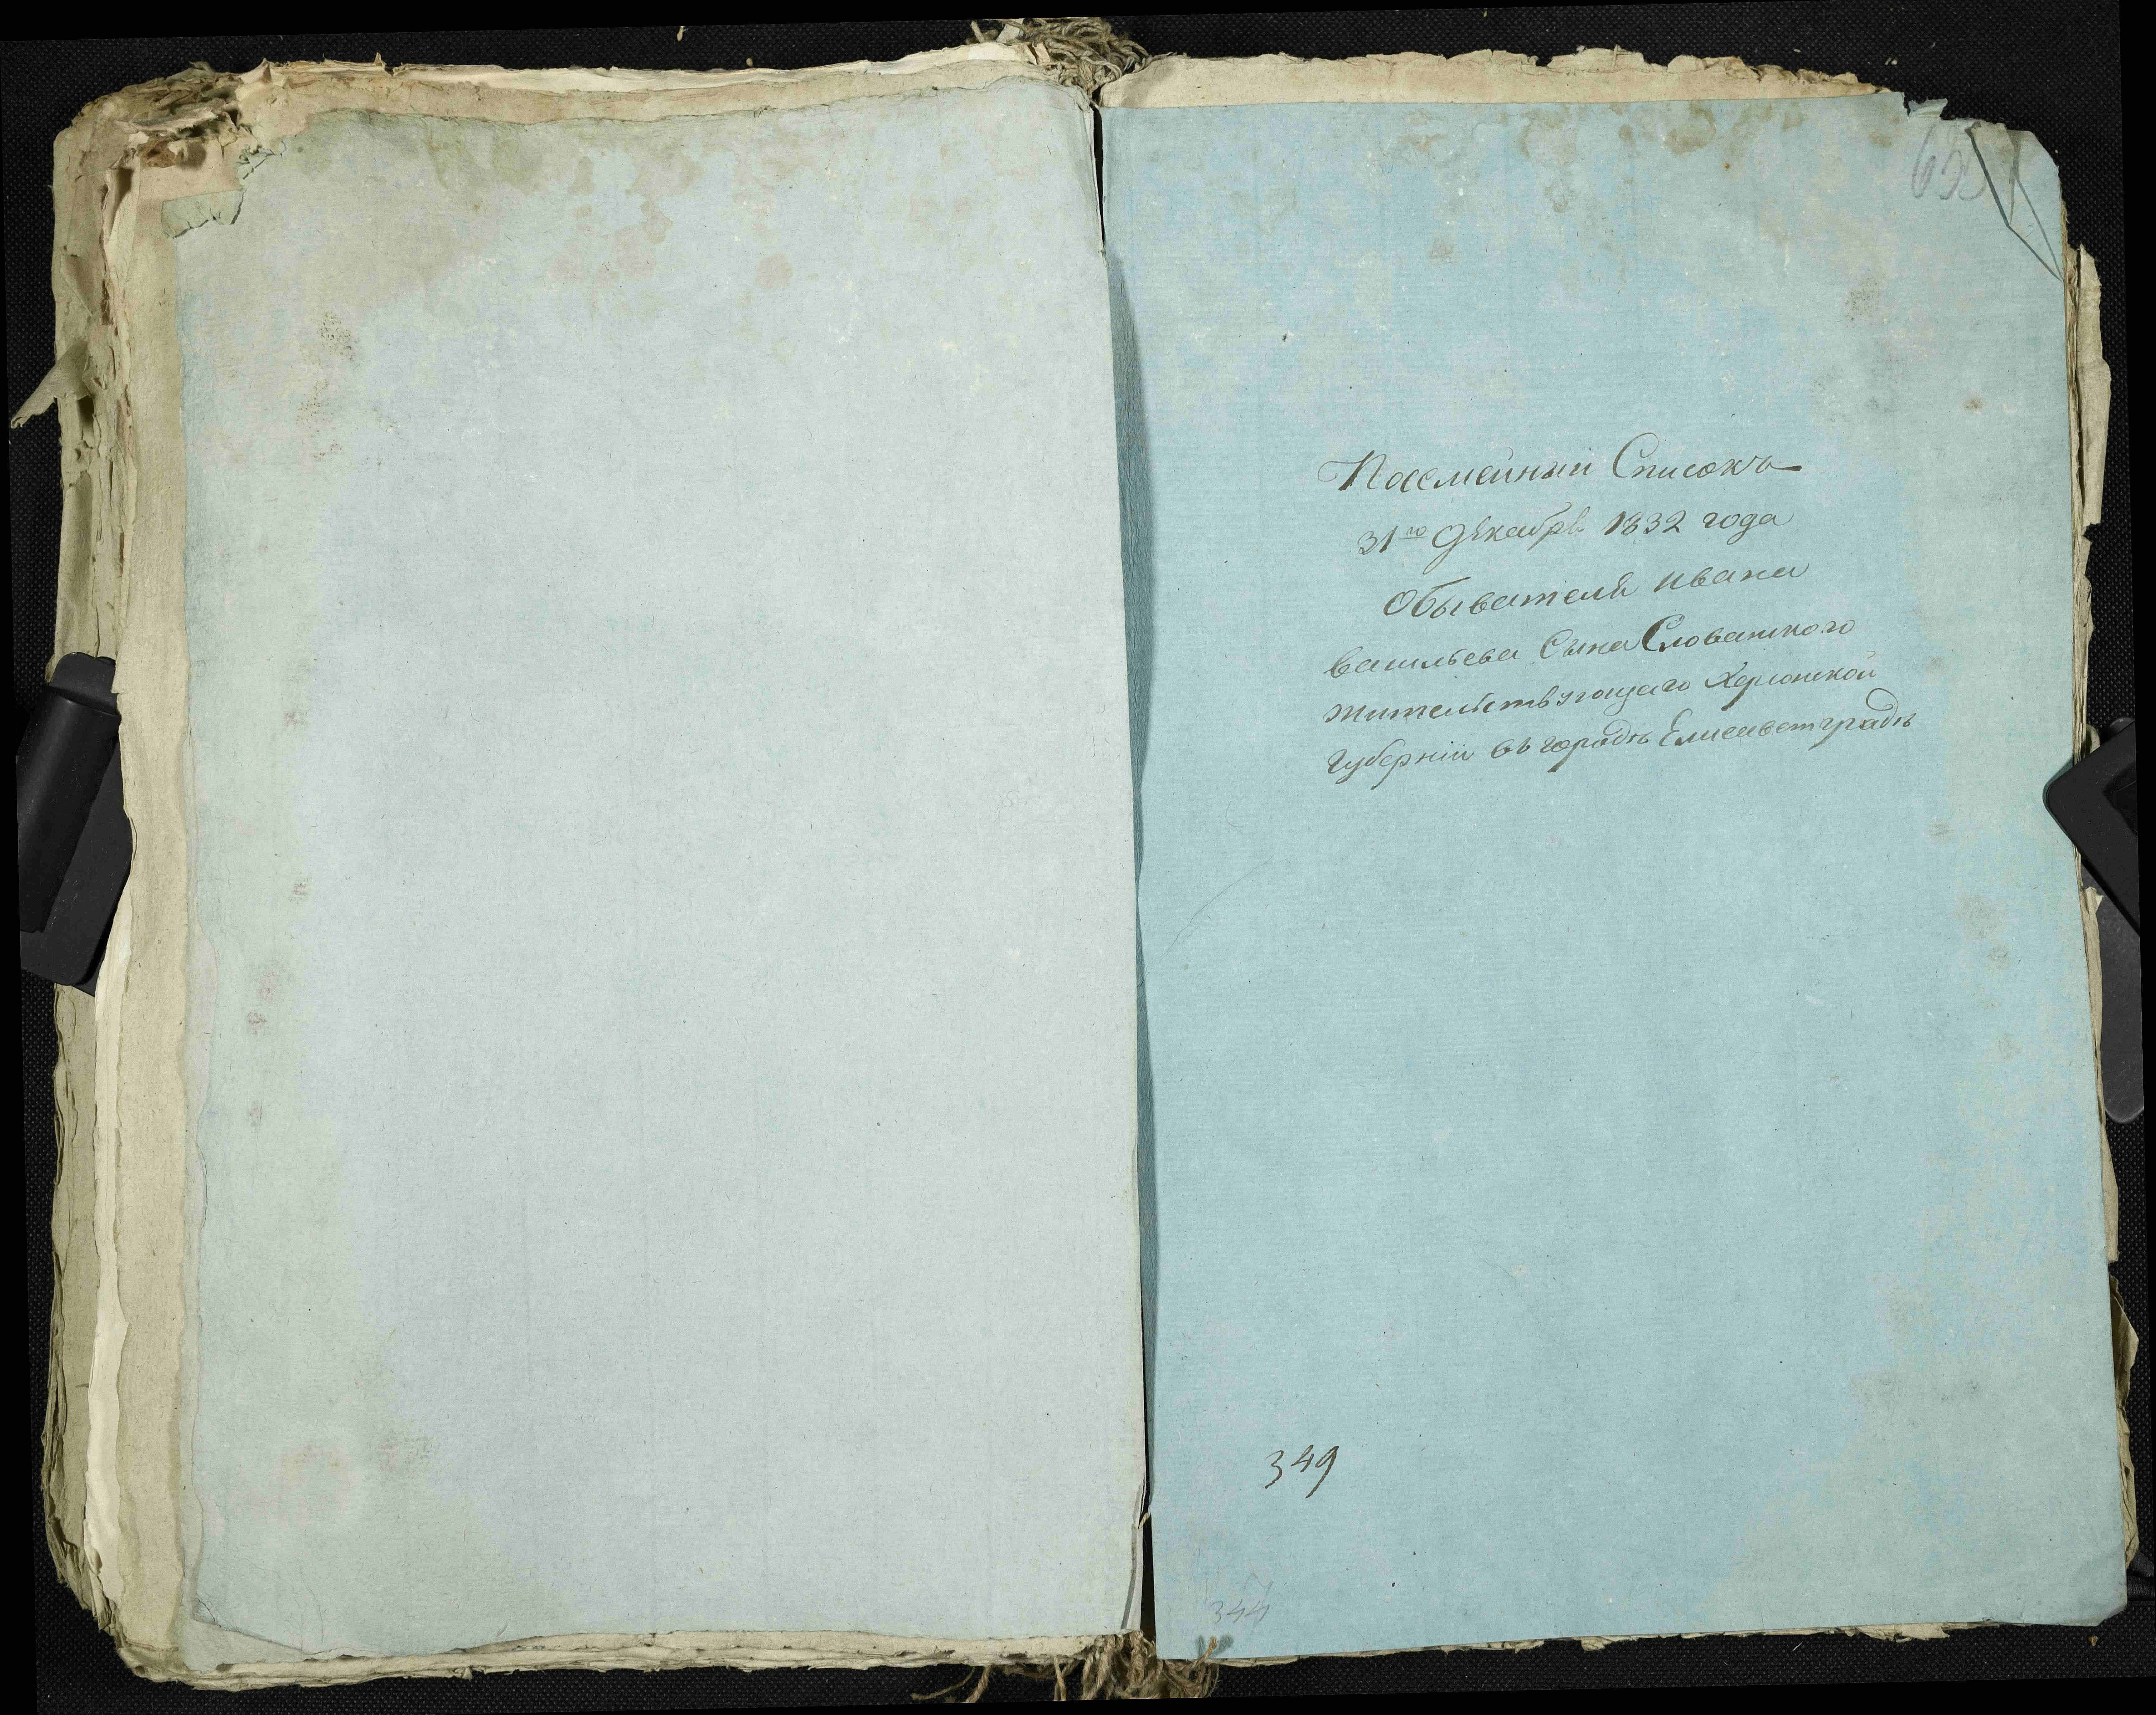 Посемейный Списокъ
31го Декабря 1832 года
Обывателя Ивана
Васильева Сына Словацкого
жительствующего Херсонской
Губерніи въ городѣ Елисаветградѣ
349
344